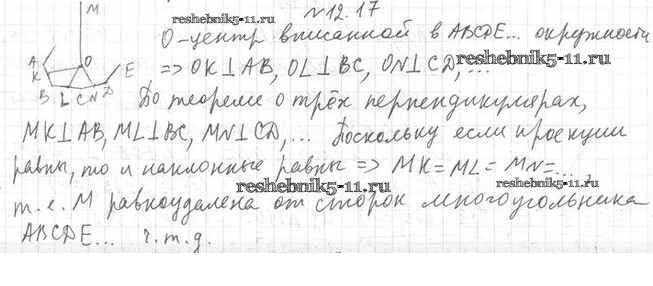 M
reshebnik5-11.ru
№12.17
O-центр вписанной в ABCDE... окружности
A
K
O
E
=> OK⊥AB, OL⊥BC, ON⊥CD,...
reshebnik5-11.ru
B L C N D
По теореме о трёх перпендикулярах,
MK⊥AB, ML⊥BC, MN⊥CD,... Поскольку если проекции
равны, то и наклонные равны => MK=ML=MN=...,
reshebnik5-11.ru
reshebnik5-11.ru
т.е. M равноудалена от сторон многоугольника
ABCDE... ч.т.д.